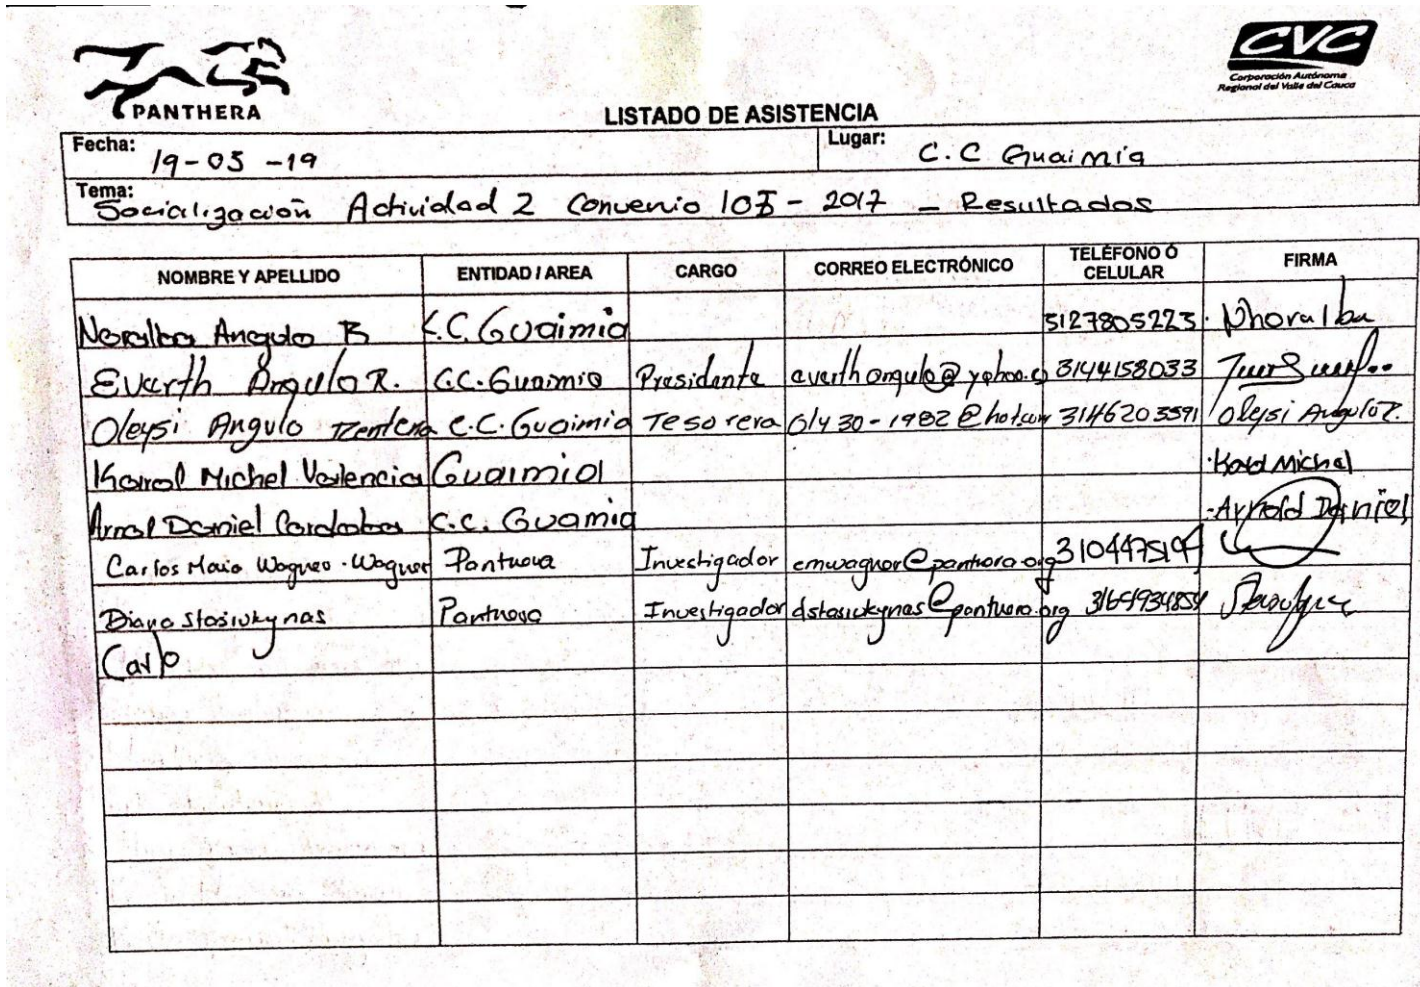 PANTHERA
CVC
Corporación Autónoma
Regional del Valle del Cauca
LISTADO DE ASISTENCIA
Fecha: 19-03-19 Lugar: C.C Guaimia
Tema: Socialización Actividad 2 Convenio - 2017 - Resultados
NOMBRE Y APELLIDO ENTIDAD / AREA CARGO CORREO ELECTRÓNICO TELÉFONO Ó CELULAR FIRMA
Noralba Angulo R C.C. Guaimia 3127805223 Nhoralba
Everth Angulo R. C.C. Guaimia Presidente 3144158033
Oleysi Angulo Renteria C.C. Guaimia Tesorera Oly30-1982@hot.com 3146203591 Oleysi Angulo R.
Karol Michel Valencia Guaimia Karol Michel
Arnol Daniel Cordoba C.C. Guamia Arnold Daniel
Carlos Mario Wagner-Wagner Panthera Investigador cmwagner@panthera.org
Diana Stasiukynas Panthera Investigador dstasiukynas@panthera.org
Carlo